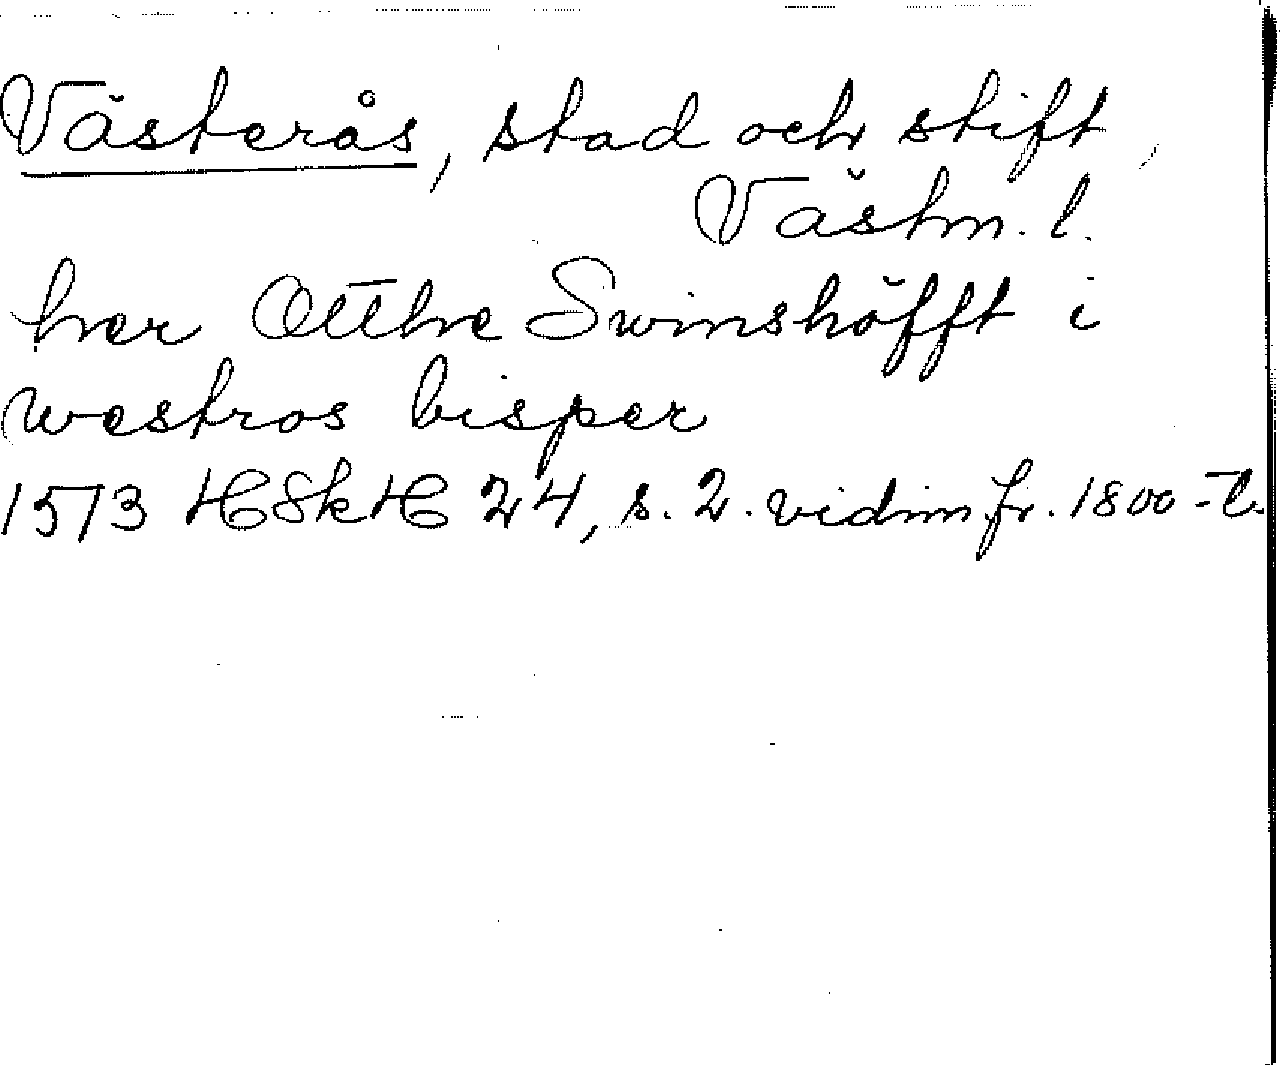 Västerås, stad och stift,
Västm. l.
her Otthe Swinshöfft i
westros bisper
1573 HSkH 24, s. 2. vidim fr. 1800-t.